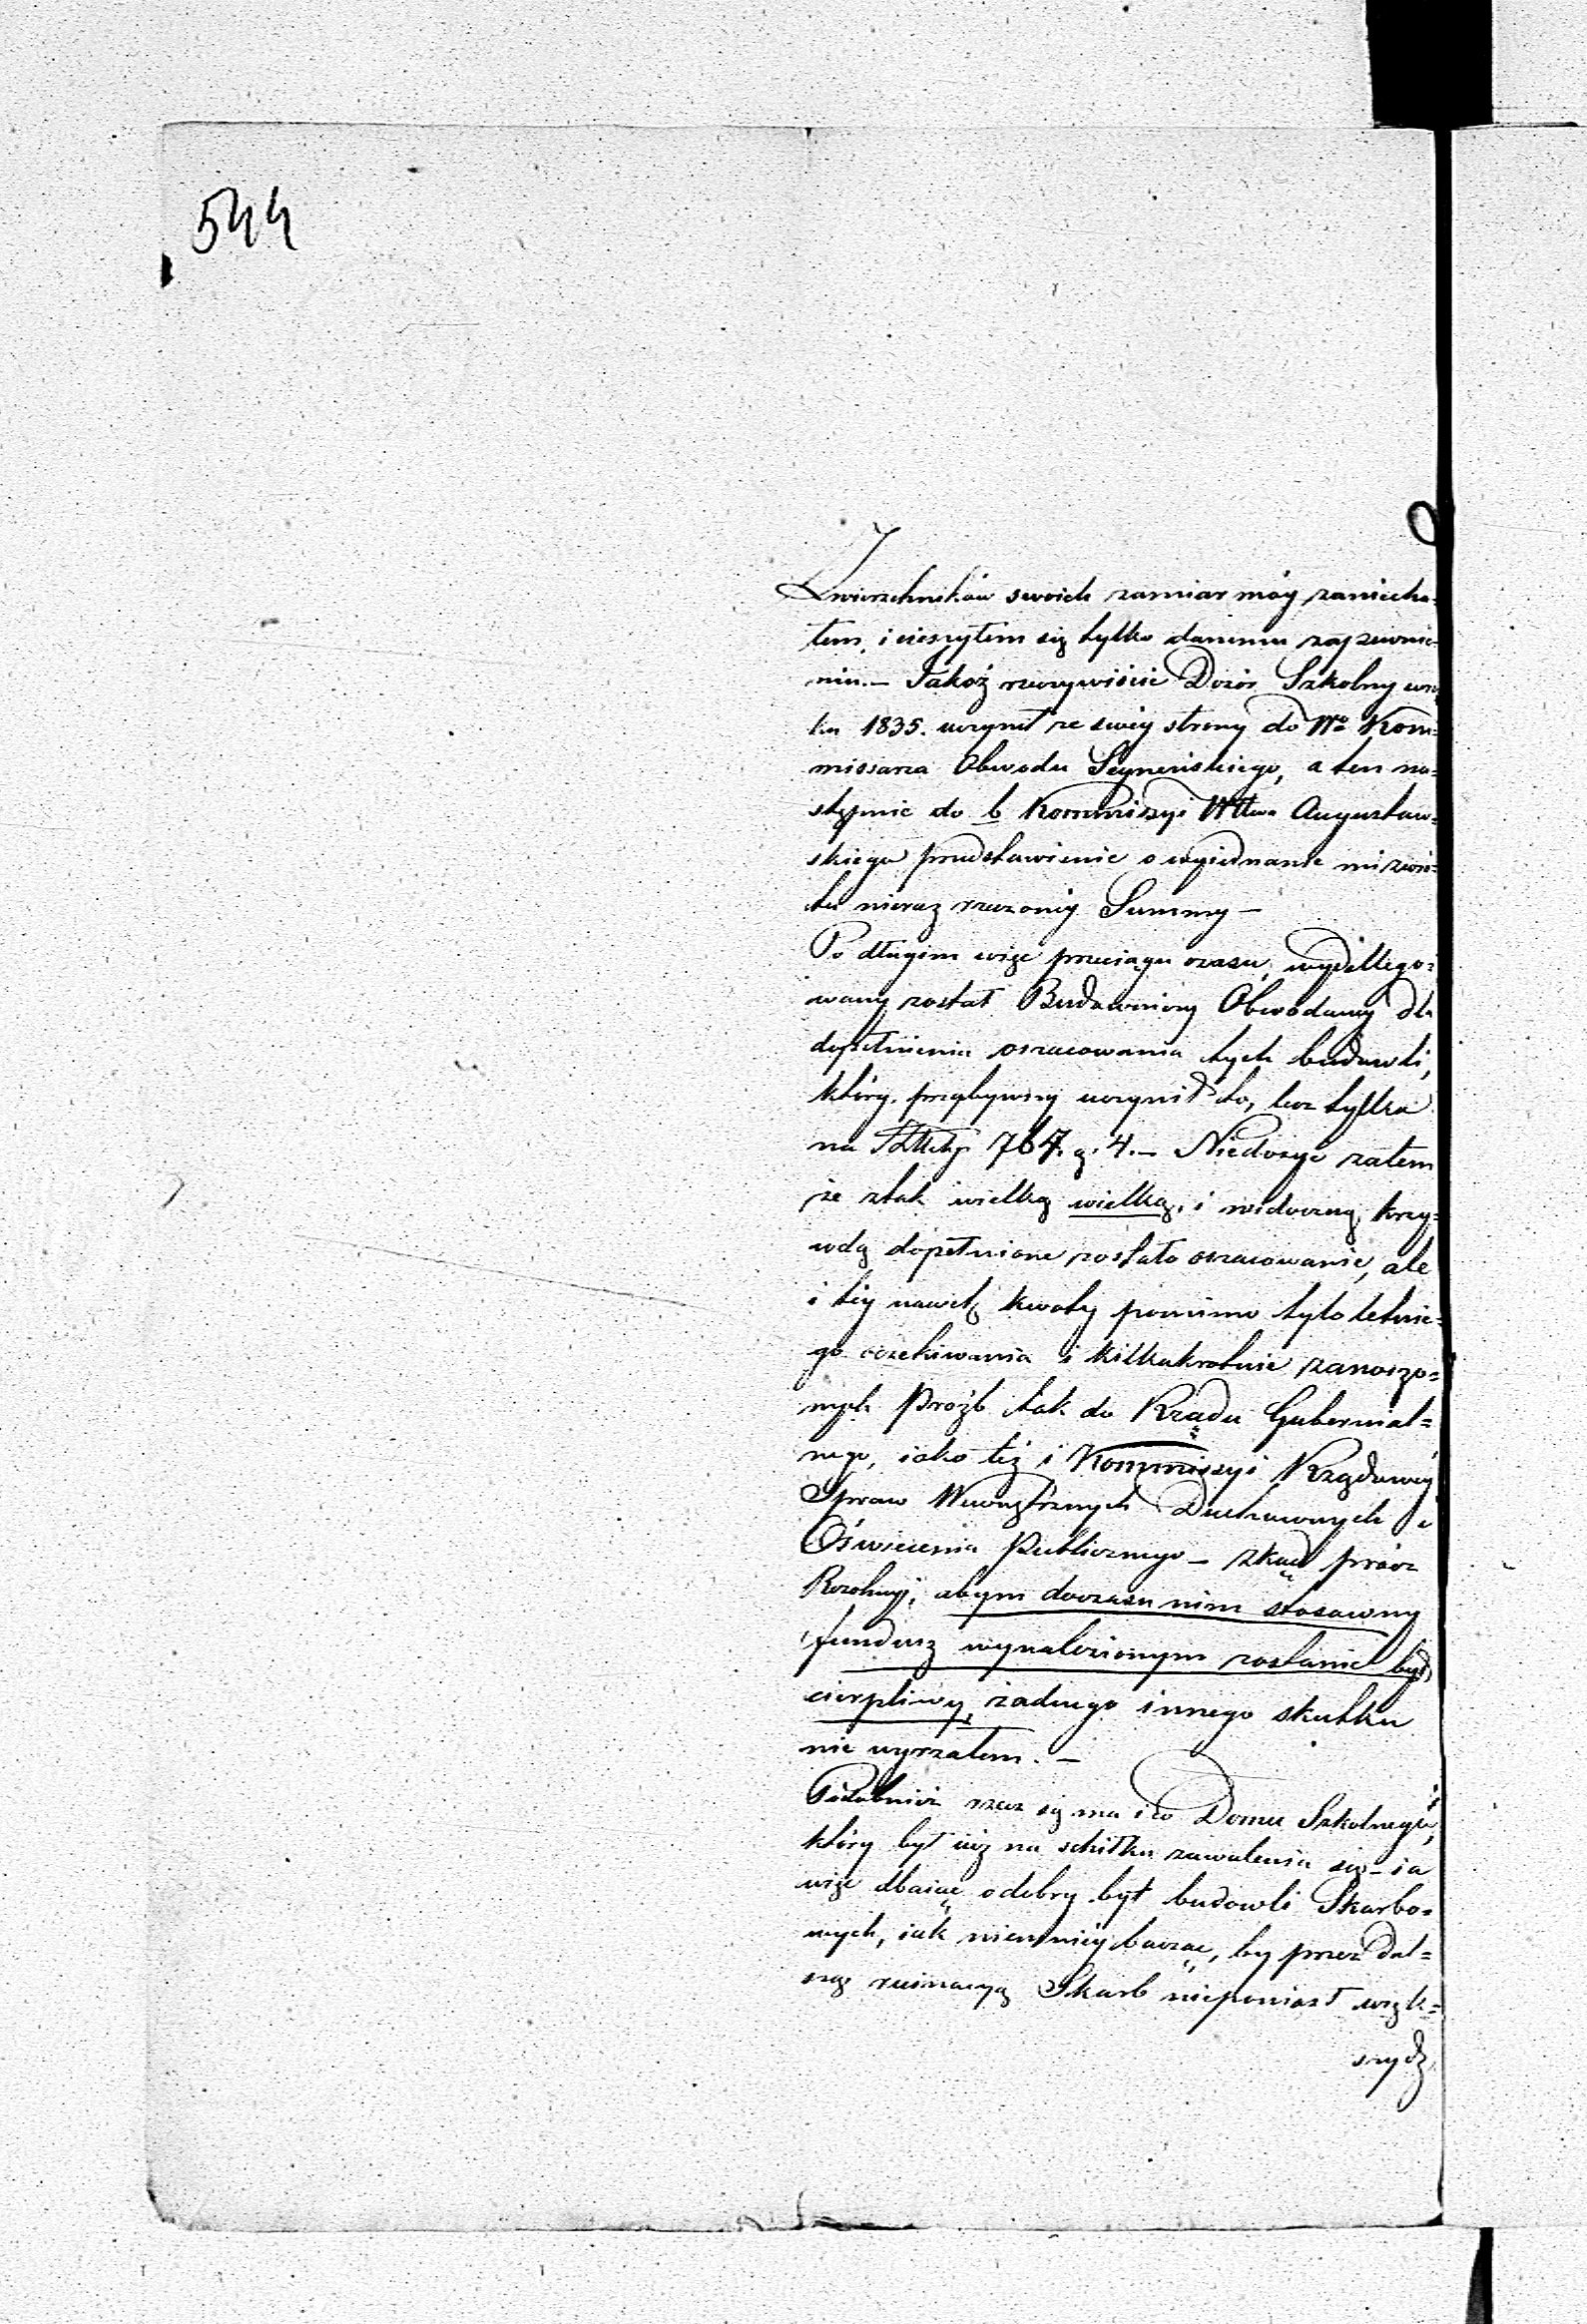 544
Zwierzchników swoich zamiar móy zaniecha-
łem, i cieszyłem się tylko danemu zapewnie-
niu. — Jakoż rzeczywiście Dozór Szkolny w ro
ku 1835. uczynił ze swéy strony do Wo Kom-
missarza Obwodu Seyneńskiego, a ten na-
stępnie do b Kommissyi Wtwa Augustow-
skiego przedstawienie o wyjednanie mi zwro-
tu nieraz rzeczonéy Summy —
Po długim więc przeciągu czasu, wydellego-
wany został Budowniczy Obwodowy dla
dopełnienia oszacowania tych budowli,
który, przybywszy uczynił to, lecz tylko
na 767. g. 4. — Niedosyć zatem
że z tak wielką wielką, i widoczną krzy-
wdą dopełnione zostało oszacowanie, ale
i téy nawet kwoty pomimo tylo letnie-
go oczekiwania i kilkakrotnie zanoszo-
nych Prozb tak do Rządu Gubernial-
nego, iako téż i Kommissyi Rządowéy
Spraw Wewnętrznych Duchownych i
Oświecenia Publicznego — zkąd prócz
Rezolucyi, abym doczasu nim stosowny
fundusz wynalezionym zostanie był
cierpliwy, żadnego innego skutku
nie uyrzałem. —
Podobnież rzecz się ma i co Domu Szkolnego,
który był iuż na schiłku zawalenia się — ia
więc dbaiąc o dobry byt budowli Skarbo-
wych, iak niemniéy bacząc, by przez dal-
szą ruinacyą Skarb nieponiósł więk-
szych